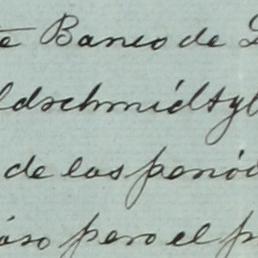 te Banco de
ldschmidt y
de los perió
oso pero el p